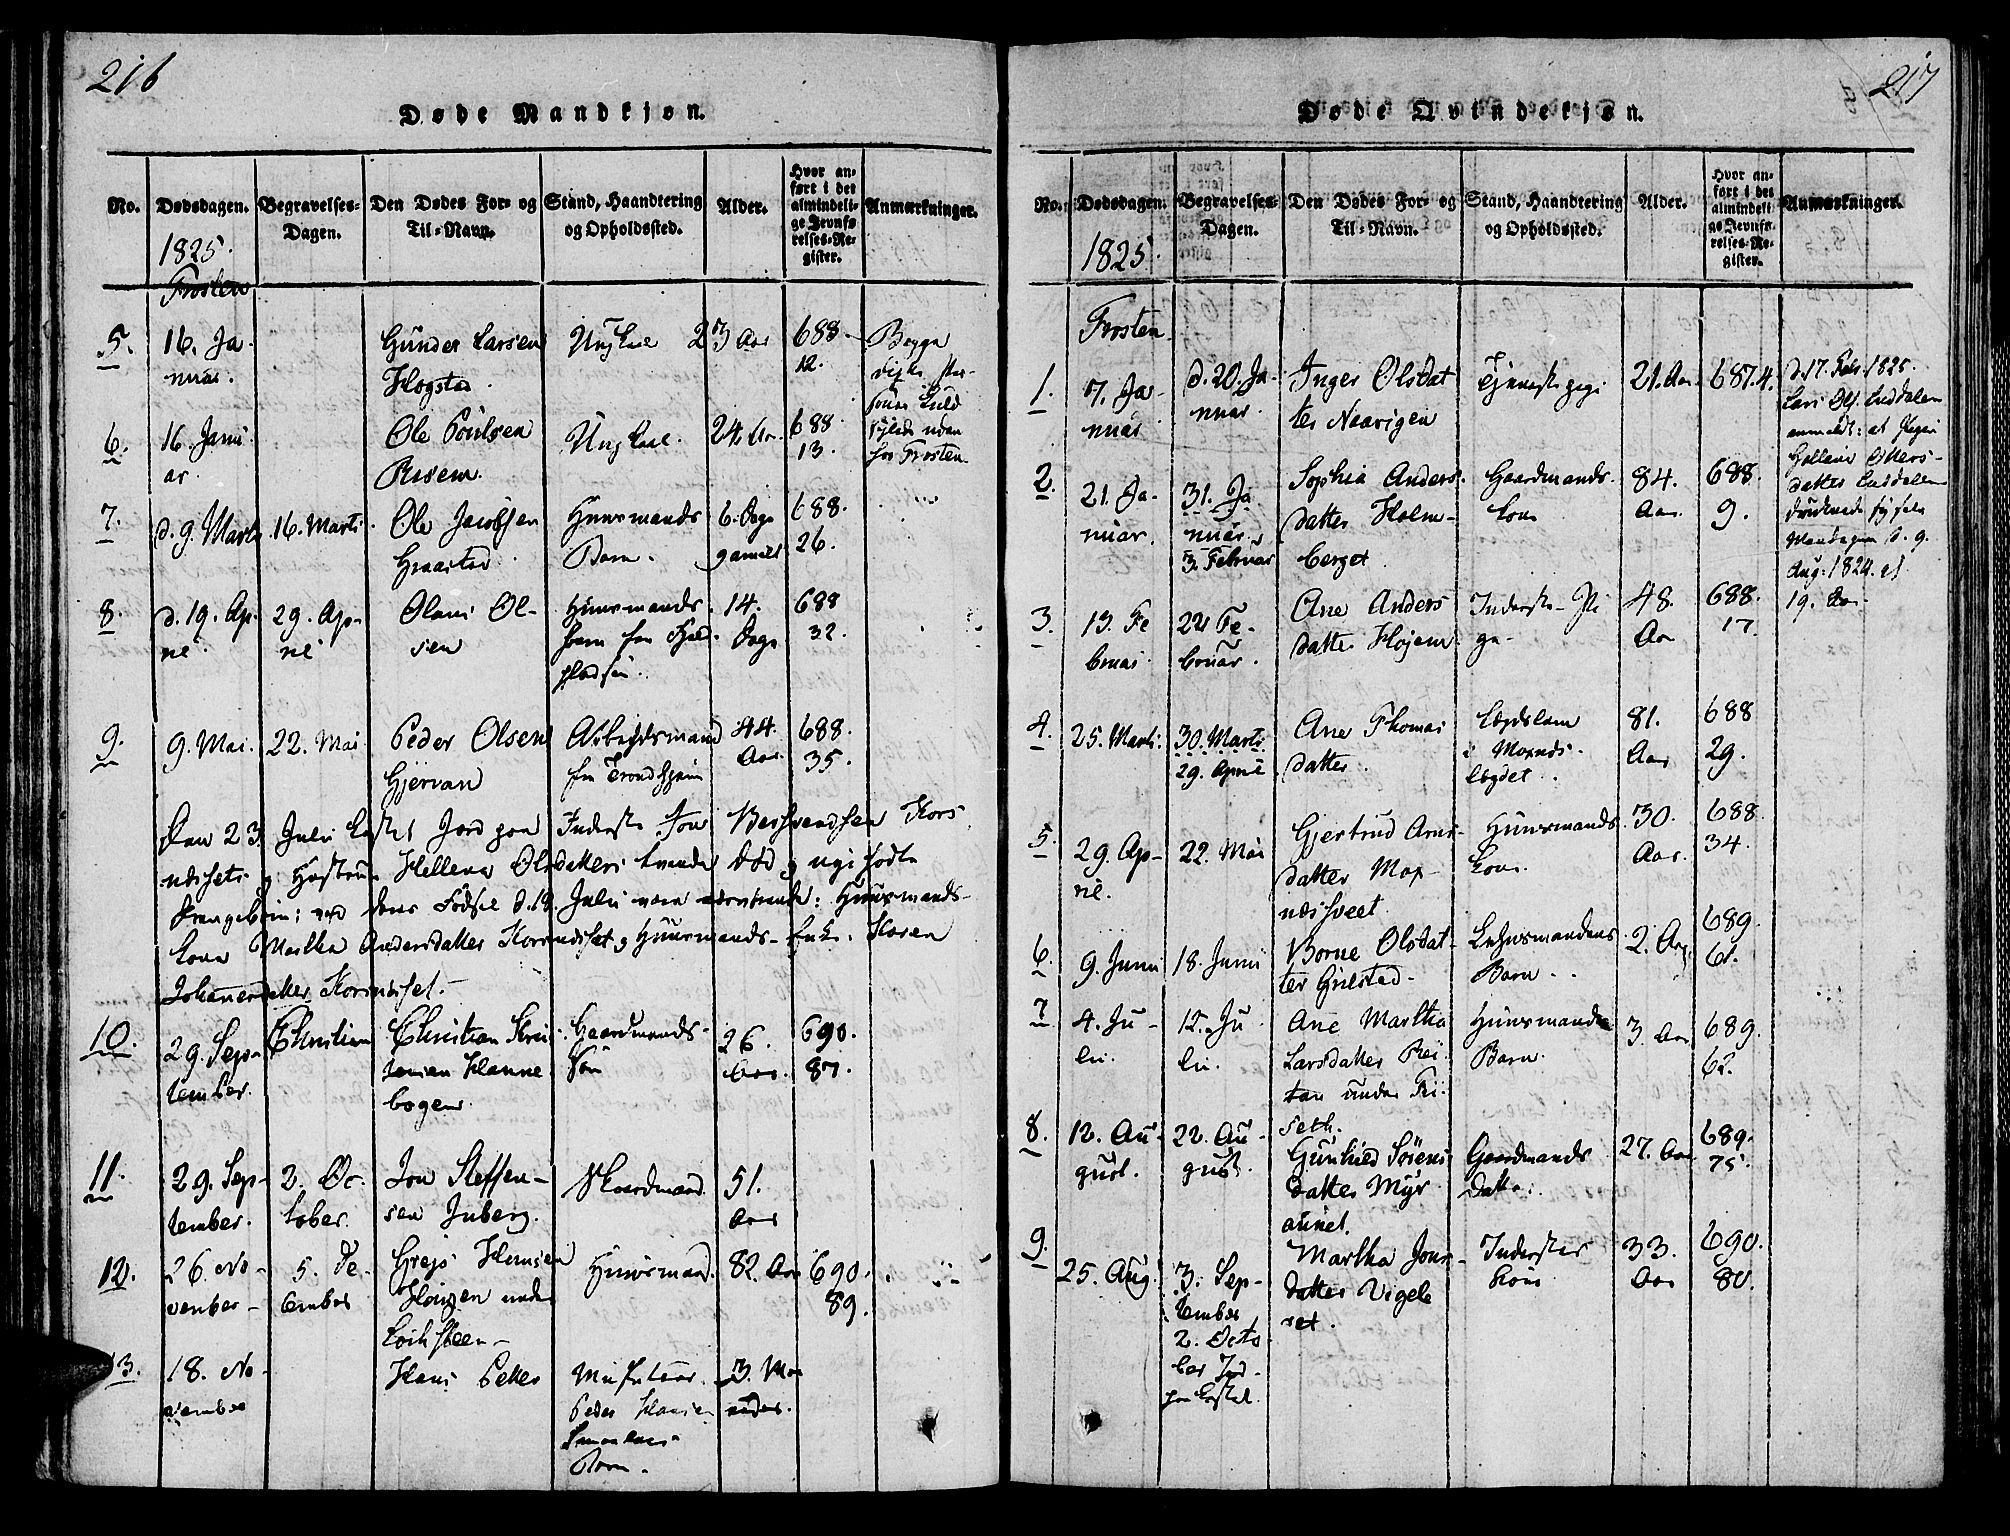 216
Døde Mandkjøn.
No.
Dødsdagen.
Begravelses-
Dagen.
Den Dødes For- og
Til-Navn.
Stand, Haandtering
og Opholdssted.
Alder.
Hvor an-
ført i det
almindeli-
ge Jevnfø-
relses-Re-
gister.
Anmærkninger.
1825.
Frosten
5.
16. Ja-
nuar.
Gunder Larsen
Hogstad
Ungkarl
23 Aar
688
12.
Begge
6.
16. Janu
ar.
Ole Poulsen
Risem.
Ungkarl.
24 Aar.
688
13.
uden
for Frosten
7.
d. 9. Marts
16. Marts
Ole Jacobsen
Huusmands
Barn.
6. Dage
gammel
688.
26.
8.
d. 19. Ap-
ril.
29. Ap-
ril
Olaus Ol-
sen
Huusmands
14.
Dage
688
32.
9.
9. Mai.
22. Mai
Peder Olsen
Gjervan
Arbeidsmand
fra Trondhjem
44.
Aar
688.
35.
Den 23. Juli kastet Jord paa Inderste Jon
Hustrue Hellena Olsdatters tvende død og nyefødte
Drengebørn: ved deres Fødsel d. 19. Juli vare nærværende: Huusmands-
kone Martha Andersdatter Korsnesset, og Huusmands-Enke. Karen
Johannesdatter
10.
29. Sep-
tember.
Christian
Christian Kris-
tensen Hanne
bogen.
Gaardmands-
Søn
26.
Aar.
690.
87.
11.
29. Sep-
tember.
2. Oc-
tober.
Jon Steffen-
sen Juberg.
Gaardmand
51.
Aar
12.
26. No-
vember
5. De-
cember
Hansen
under
Huusmand.
82. Aar
690.
89.
13.
18. No-
vember
Hans Petter
Peder Hansen
Barn.
3. Maa
neder.
217
Døde Qvindekjøn.
No.
Dødsdagen.
Begravelses-
Dagen.
Den Dødes For- og
Til-Navn.
Stand, Haandtering
og Opholdssted.
Alder.
Hvor an-
ført i det
almindeli-
ge Jevnfø-
relses-Re-
gister.
Anmærkninger.
1825.
Frosten
1.
7. Ja-
nuar
d. 20. Ja-
nuar.
Inger Olsdat
ter Naavigen
Tjenestepige
21. Aar
687.4.
d. 17. Febr. 1825.
Lars Ols.
anmeldt: at Pigen
Otters-
datter
druknede sig selv
Mandagen d. 9.
Aug: 1824.
19. Aar
2.
21. Ja-
nuar.
31. Ja
nuar.
3. Februar
Sophia Anders
datter Holm-
berget
Gaardmands
kone
84.
Aar
688.
9.
3.
13. Fe
bruar
22 Fe-
bruar.
Ane Anders
datter Højem
Inderste-Pi
ge-
48.
Aar
688.
17.
4.
25. Marts.
30. Marts.
29. April
Ane Thomas
datter
Lægdslem
i Moxnes-
lægdet
81.
Aar
688
29.
5.
29. Ap-
ril.
22. Mai
Gjertrud Arns-
datter Mox-
næshveet
Huusmands
kone.
30.
Aar.
688.
34.
6.
9. Juni
18. Juni
Borne Olsdat-
ter Gulstad-
Lehnsmandens
Barn
2. Aar
689.
61.
7
4. Ju-
li.
12. Ju
li.
Ane Martha
Larsdatter Rei-
tan under Fri-
seth.
Huusmands
Barn.
3. Aar
689.
62.
8.
12. Au-
gust.
22. Au-
gust.
Gunhild Sørens
datter Myr
aunet.
Gaardmands
Datter.
27. Aar
689.
75.
9.
25. Aug.
3. Sep-
tember
2. Octo
ber Jord
paa kastet.
Martha Jons-
datter Vigele
ret.
Inderstes
kone
33.
Aar
690.
80.